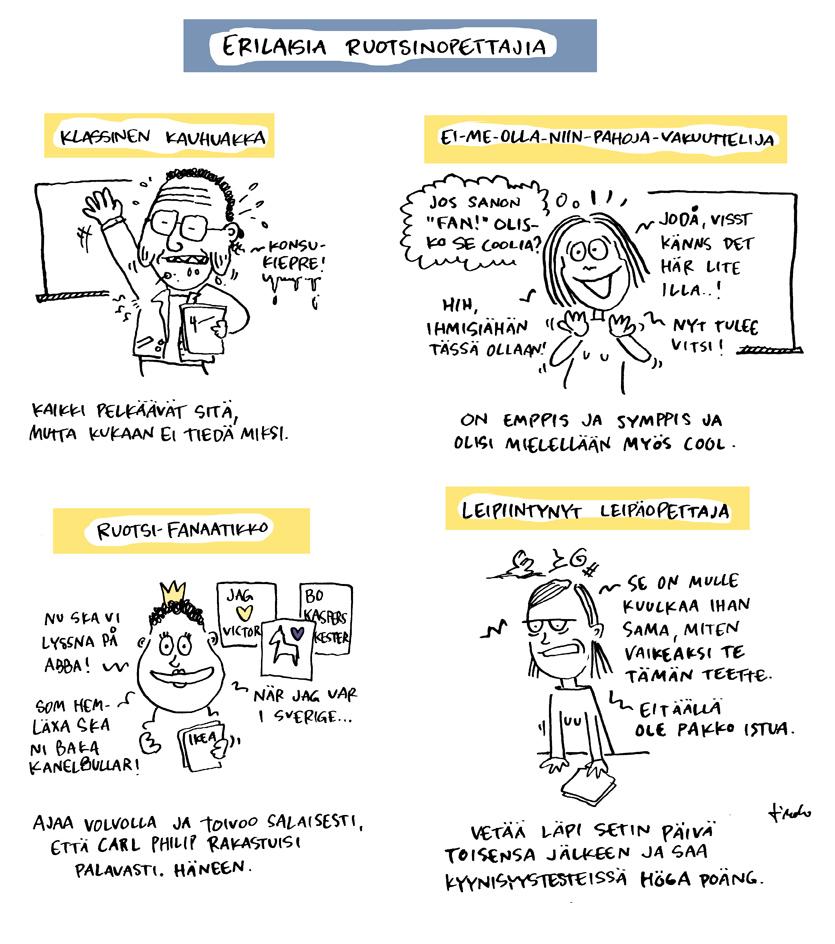 ERILAISIA RUOTSINOPETTAJIA
KLASSINEN KAUHUAKKA
KONSU-
KIEPRE!
4/
KAIKKI PELKÄÄVÄT SITÄ,
MUTTA KUKAAN EI TIEDÄ MIKSI.
EI-ME-OLLA-NIIN-PAHOJA-VAKUUTTELIJA
JOS SANON
"FAN!" OLIS-
KO SE COOLIA?
JODÅ, VISST
KÄNNS DET
HÄR LITE
ILLA..!
HIH,
IHMISIÄHÄN
TÄSSÄ OLLAAN!
NYT TULEE
VITSI!
ON EMPPIS JA SYMPPIS JA
OLISI MIELELLÄÄN MYÖS COOL.
RUOTSI-FANAATIKKO
JAG
VICTOR
BO
KASPERS
KESTER
NU SKA VI
LYSSNA PÅ
ABBA!
SOM HEM-
LÄXA SKA
NI BAKA
KANELBULLAR!
NÄR JAG VAR
I SVERIGE...
IKEA
AJAA VOLVOLLA JA TOIVOO SALAISESTI,
ETTÄ CARL PHILIP RAKASTUISI
PALAVASTI. HÄNEEN.
LEIPIINTYNYT LEIPÄOPETTAJA
SE ON MULLE
KUULKAA IHAN
SAMA, MITEN
VAIKEAKSI TE
TÄMÄN TEETTE.
EI TÄÄLLÄ
OLE PAKKO ISTUA.
VETÄÄ LÄPI SETIN PÄIVÄ
TOISENSA JÄLKEEN JA SAA
KYYNISYYSTESTEISSÄ HÖGA POÄNG.